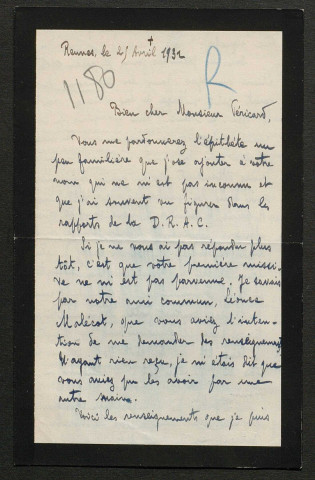 Rennes, le 25 Avril 1932
1180
R
Bien cher Monsieur Péricard,
Vous me pardonnerez l'épithète un
peu familière que j'ose ajouter à votre
nom qui ne m'est pas inconnu et
que j'ai souvent vu figurer dans les
rapports de la D.R.A.C.
Si je ne vous ai pas répondu plus
tôt, c'est que votre première missi-
ve ne m'est pas parvenue. Je savais
par notre ami commun, Léonce
Malécot, que vous aviez l'inten-
tion de me demander des renseignements
N'ayant rien reçu, je m'étais dit que
vous aviez pu les avoir par une
autre main.
Voici les renseignements que je puis